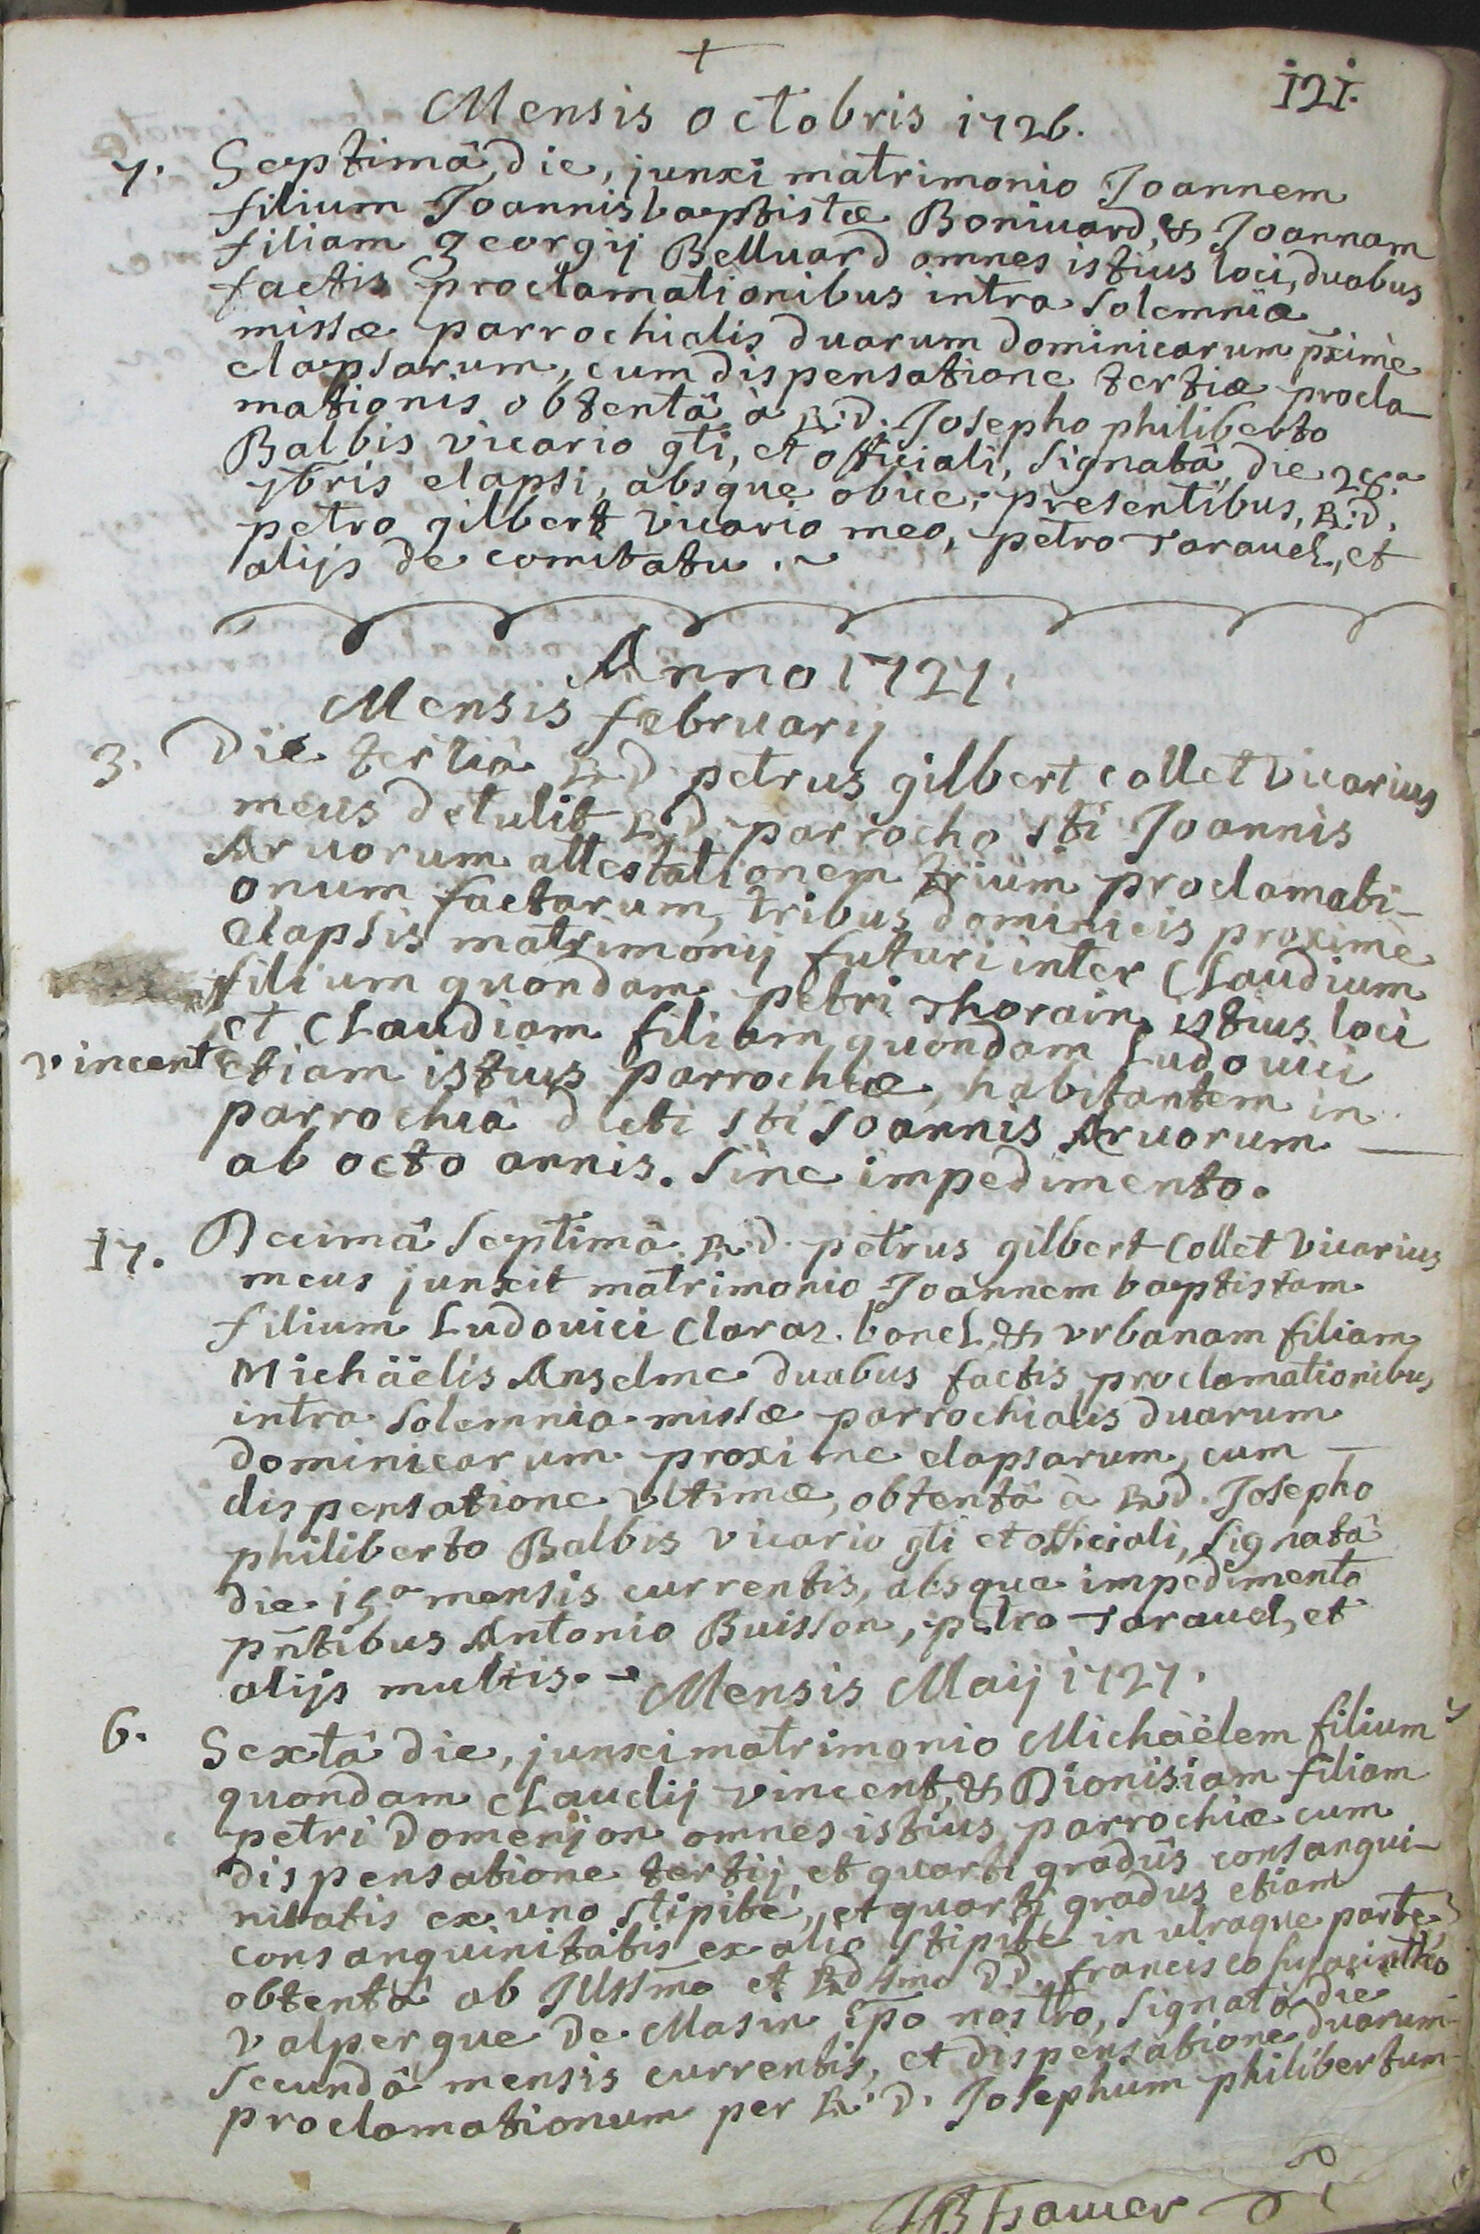 +
121.
Mensis octobris 1726.
7. Septimâ die, junxi matrimonio Joannem
filium Joannisbaptistæ Boniuard, & Joannam
filiam georgij Belluard omnes istius loci, duabus
factis proclamationibus intra solemnia
missæ parrochialis duarum dominicarum pximè
elapsarum, cum dispensatione tertiæ procla-
mationis obtentâ à R.d. Josepho philiberto
Balbis vicario gti, et officiali, signatâ die 28.a
7bris elapsi, absque obice; presentibus, R.d.
petro gilbert vicario meo, petro Tarauel, et
alijs de comitatu. ~
Anno 1727.
Mensis februarij
3. Die tertiâ R.d. petrus gilbert collet vicarius
meus detulit R.d. parrocho sti Joannis
Aruorum attestationem trium proclamati-
onum factarum, tribus dominicis proximè
elapsis matrimonij futuri inter Claudium
filium quondam petri Thorain istius loci
et Claudiam filiam quondam Ludouici
vincent etiam istius parrochiæ, habitantem in
parrochiâ dicti sti Joannis Aruorum —
ab octo annis. sine impedimento.
17. Decimâ septimâ R.d. petrus gilbert Collet vicarius
meus junxit matrimonio Joannem baptistam
filium Ludouici Claraz. bonel, & vrbanam filiam
Michäelis Anselme duabus factis proclamationibus
intra solemnia missæ parrochialis duarum
dominicarum proxime elapsarum, cum —
dispensatione vltimæ, obtentâ à R.d. Josepho
philiberto Balbis vicario gti et officiali, signatâ
die 15a mensis currentis, absque impedimento
pntibus Antonio Buisson, petro Tarauel, et
alijs multis. ~ Mensis Maij 1727.
6. Sextâ die, junxi matrimonio Michäèlem filium
quondam Claudij vincent, & Dionisiam filiam
petri Domenjon omnes istius parrochiæ cum
dispensatione tertij, et quarti gradûs consangui-
nitatis ex uno stipite, et quarti gradus etiam
consanguinitatis ex alio stipite in utraque parte,
obtentâ ab Illssmo et Rdssmo DD. francisco hyacintho
valpergue de Masin Epo nostro, signatâ die
secundâ mensis currentis, et dispensatione duarum
proclamationum per R.d. Josephum philibertum